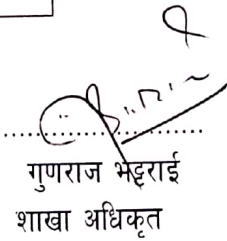 गुणराज भट्टराई
शाखा अधिकृत